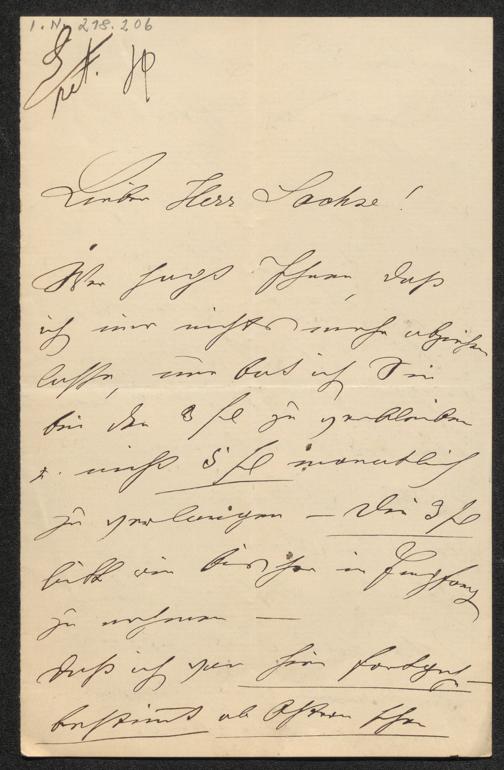 I.N. 218.206
Lieber Herr Sachse!
Wer sagt Ihnen, daß
ich mir nichts mehr abziehen
lasse, nur bat ich Sie
bei den 3 fl zu verbleiben
u. nicht 5 fl monatlich
zu verlangen — die 3 fl
bitte wie bisher in Empfang
zu nehmen —
daß ich von hier fortgeh
bestimmt ab Ostern